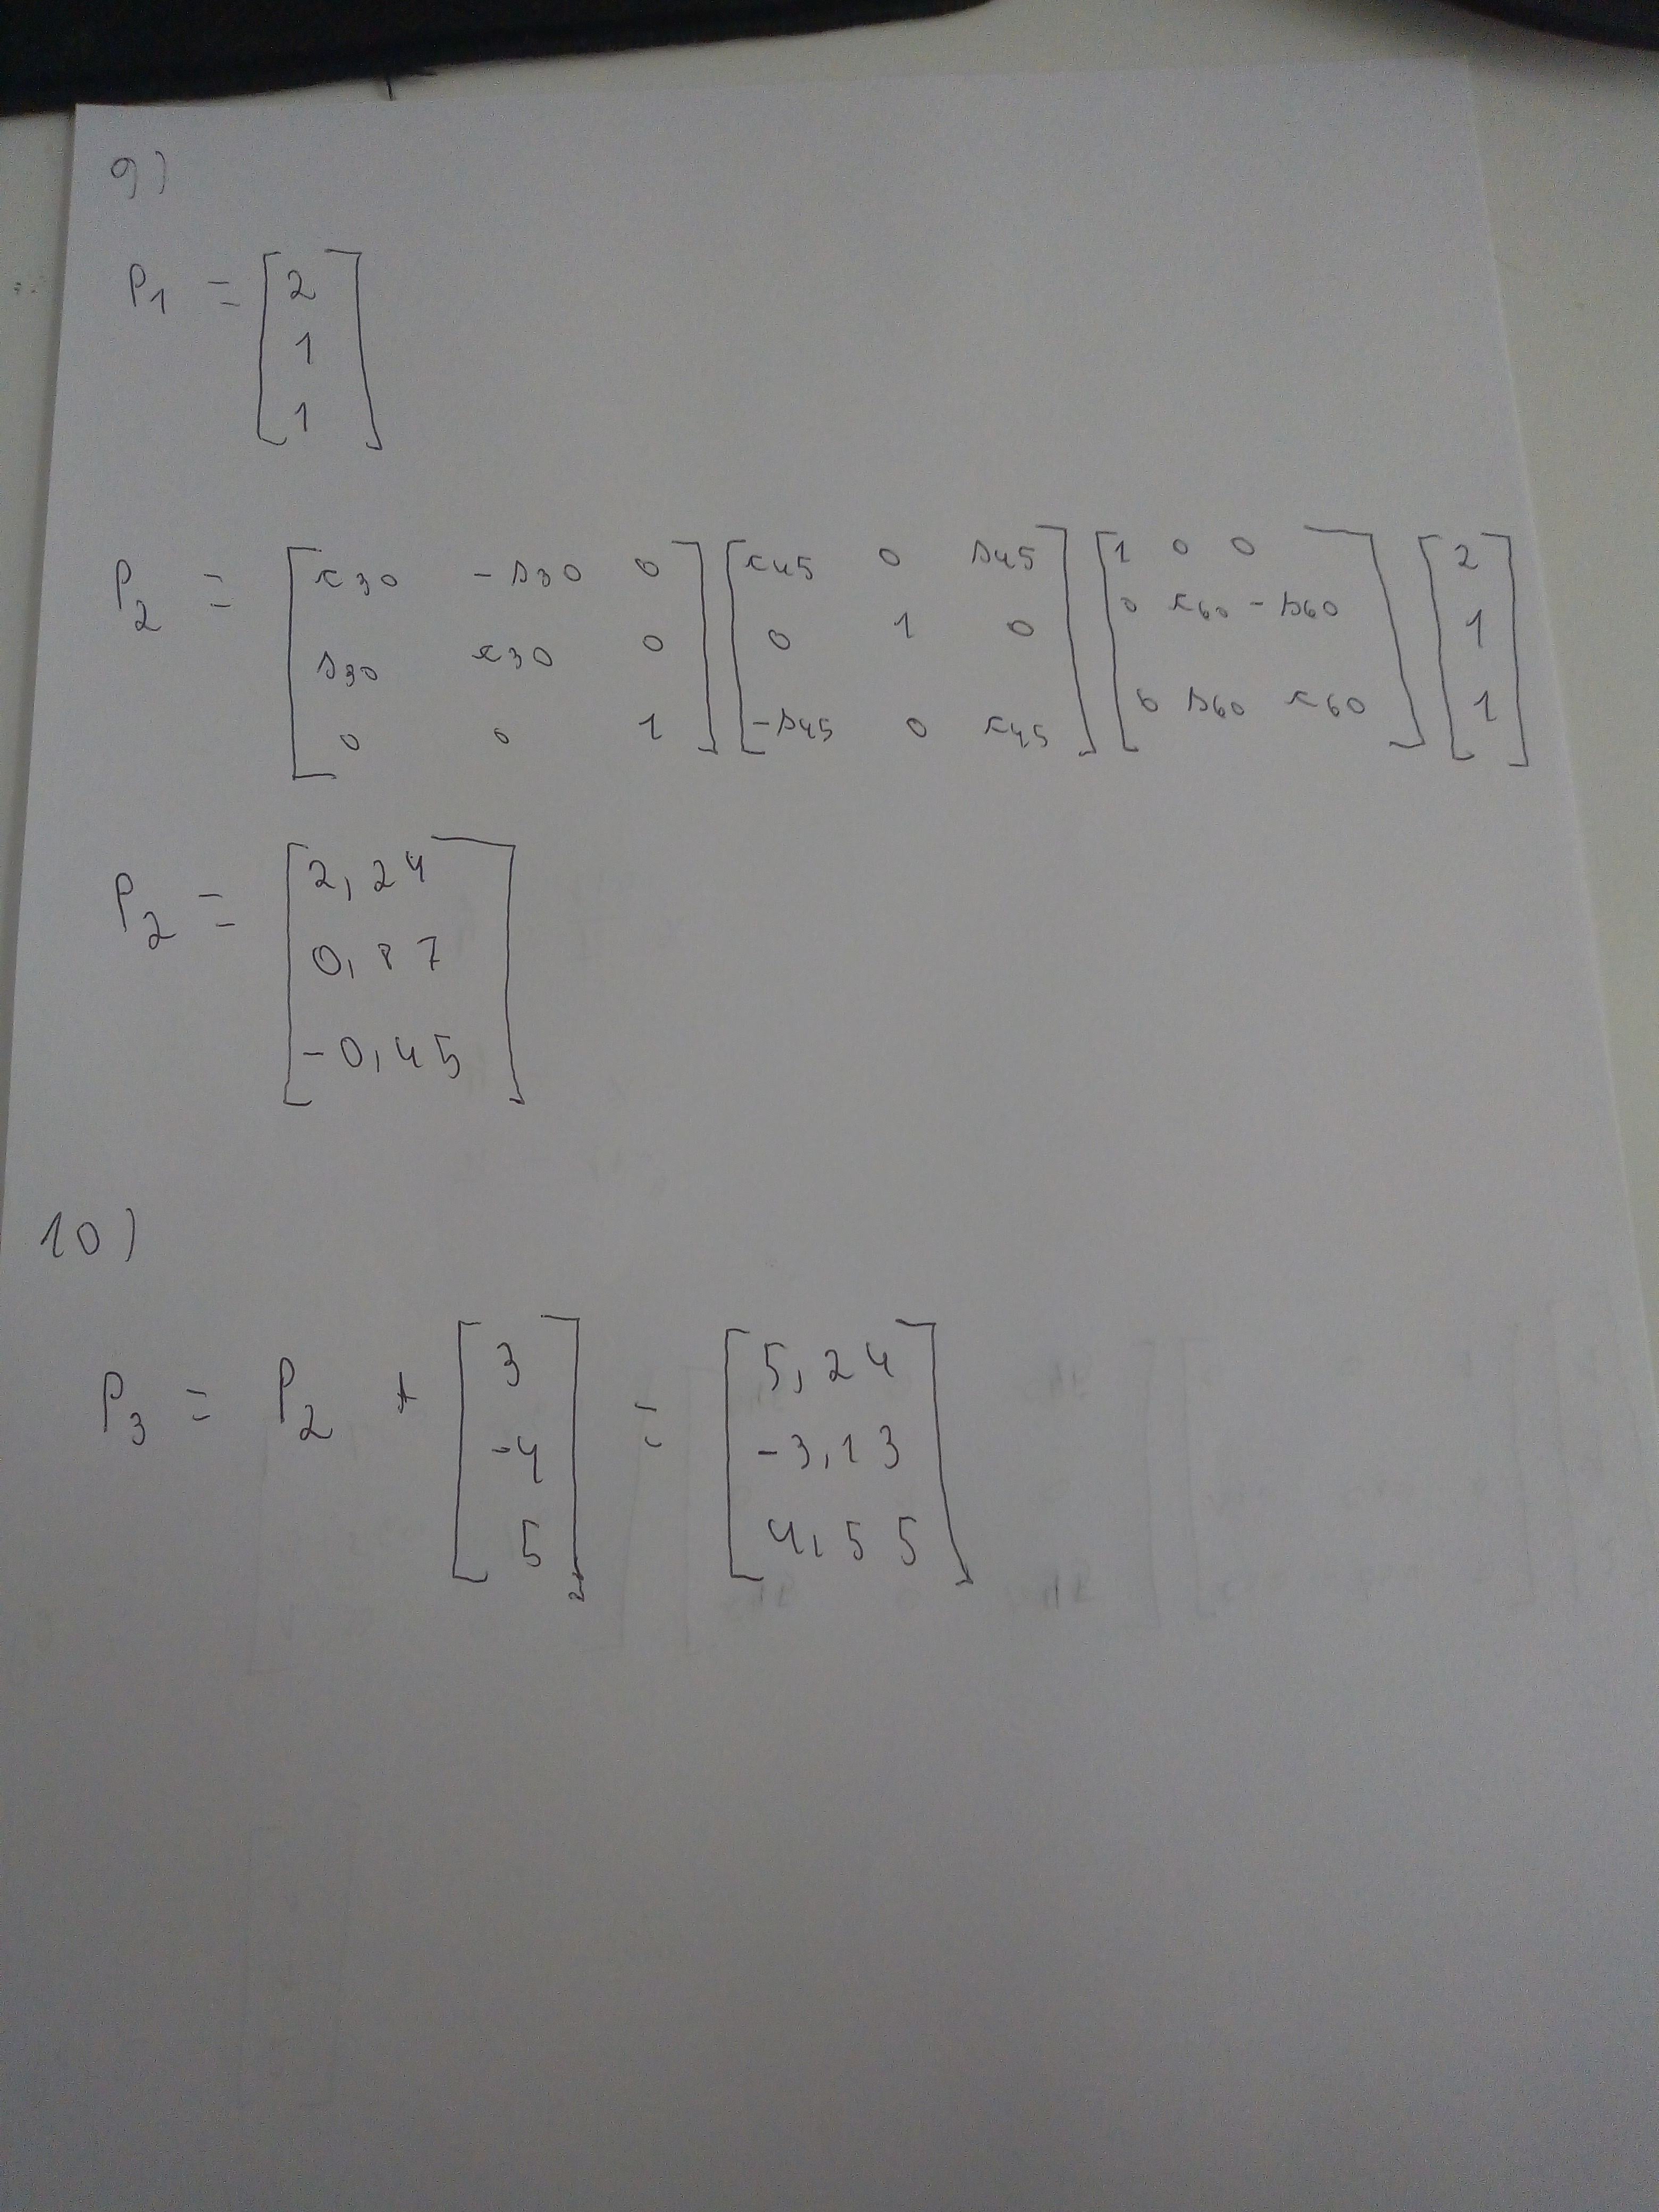 9)
P1 = [2
1
1]
P2 = [c30 -s30 0
s30 c30 0
0 0 1] [c45 0 s45
0 1 0
-s45 0 c45] [1 0 0
0 c60 -s60
0 s60 c60] [2
1
1]
P2 = [2,24
0,87
-0,45]
10)
P3 = P2 + [3
-4
5] = [5,24
-3,13
4,55]